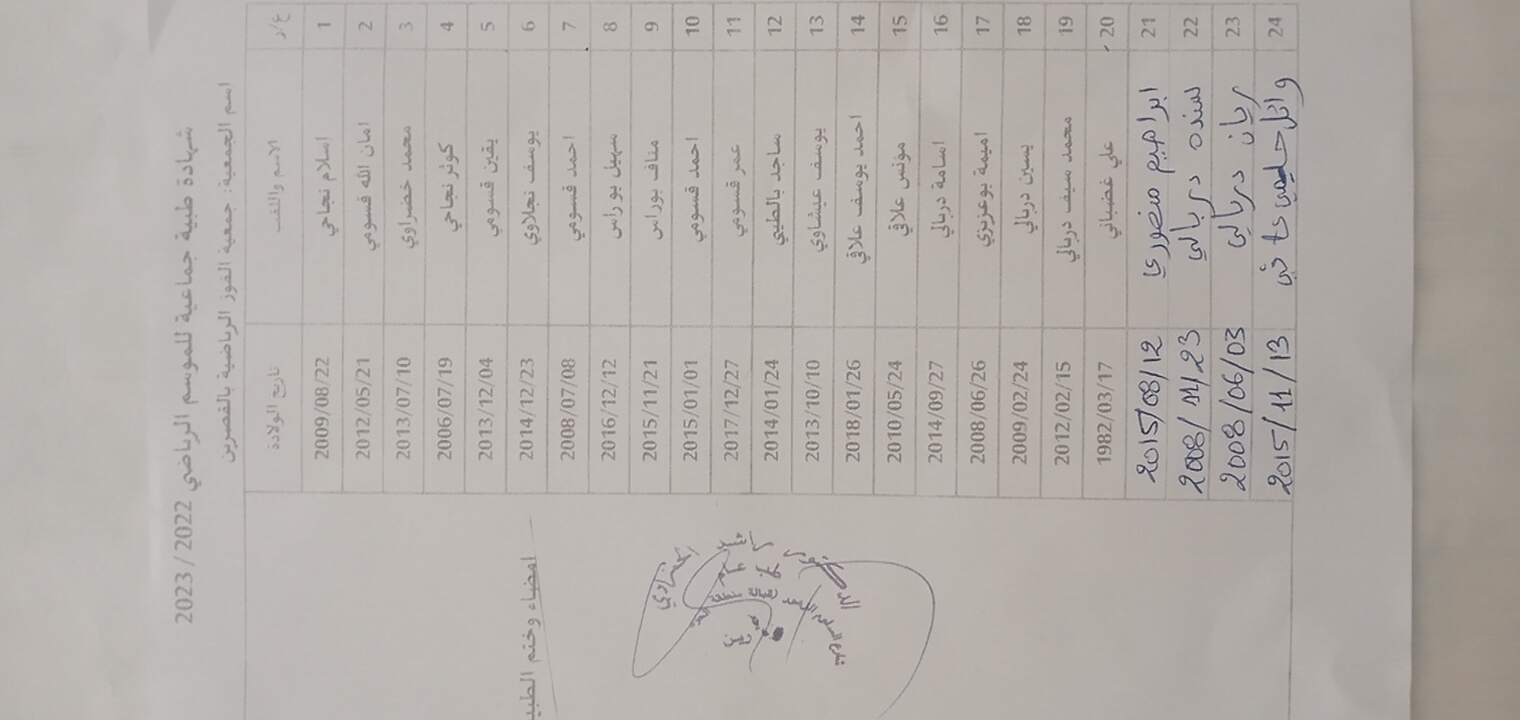 شهادة طبية جماعية للموسم الرياضي 2022 / 2023
اسم الجمعية: جمعية الفوز الرياضية بالقصرين
ع/ر الاسم واللقب تاريخ الولادة
1 اسلام نجاحي 2009/08/22
2 امان الله قسومي 2012/05/21
3 محمد خضراوي 2013/07/10
4 كوثر نجاحي 2006/07/19
5 يقين قسومي 2013/12/04
6 يوسف نجلاوي 2014/12/23
7 احمد قسومي 2008/07/08
8 سهيل بوراس 2016/12/12
9 مناف بوراس 2015/11/21
10 احمد قسومي 2015/01/01
11 عمر قسومي 2017/12/27
12 ساجد بالطيبي 2014/01/24
13 يوسف عيشاوي 2013/10/10
14 احمد يوسف علاقي 2018/01/26
15 مؤنس علاقي 2010/05/24
16 اسامة دربالي 2014/09/27
17 اميمة بوعزيزي 2008/06/26
18 يسين دربالي 2009/02/24
19 محمد سيف دربالي 2012/02/15
20 علي غضباني 1982/03/17
21 ابراهيم منصوري 2015/08/12
22 سنده دربالي 2008/11/23
23 ريان دربالي 2008/06/03
24 وائل 2015/11/13
امضاء وختم الطبيب